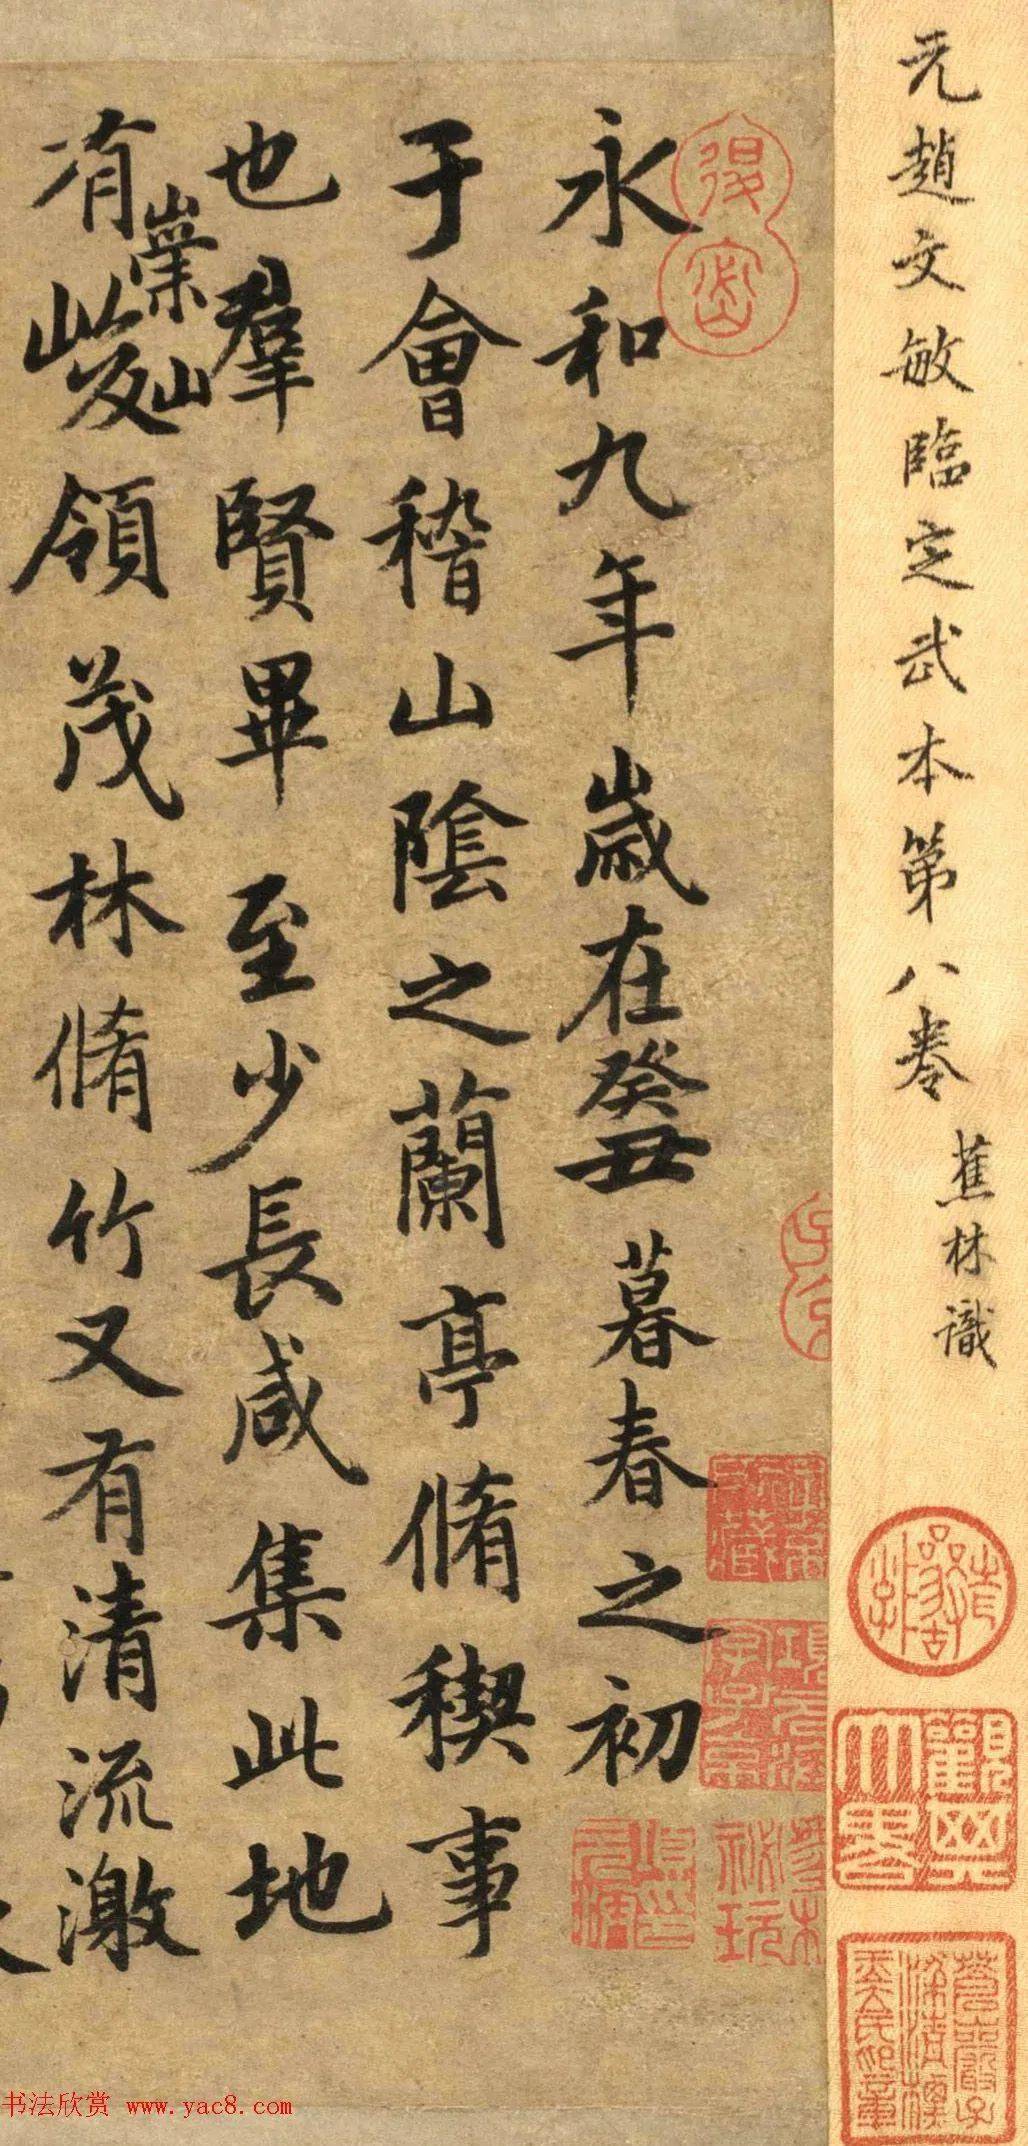 元趙文敏臨定武本第八卷
蕉林識
永和九年歲在癸丑暮春之初
于會稽山陰之蘭亭脩稧事
也羣賢畢至少長咸集此地
有崇山
峻領茂林脩竹又有清流激
書法欣赏 www.yac8.com